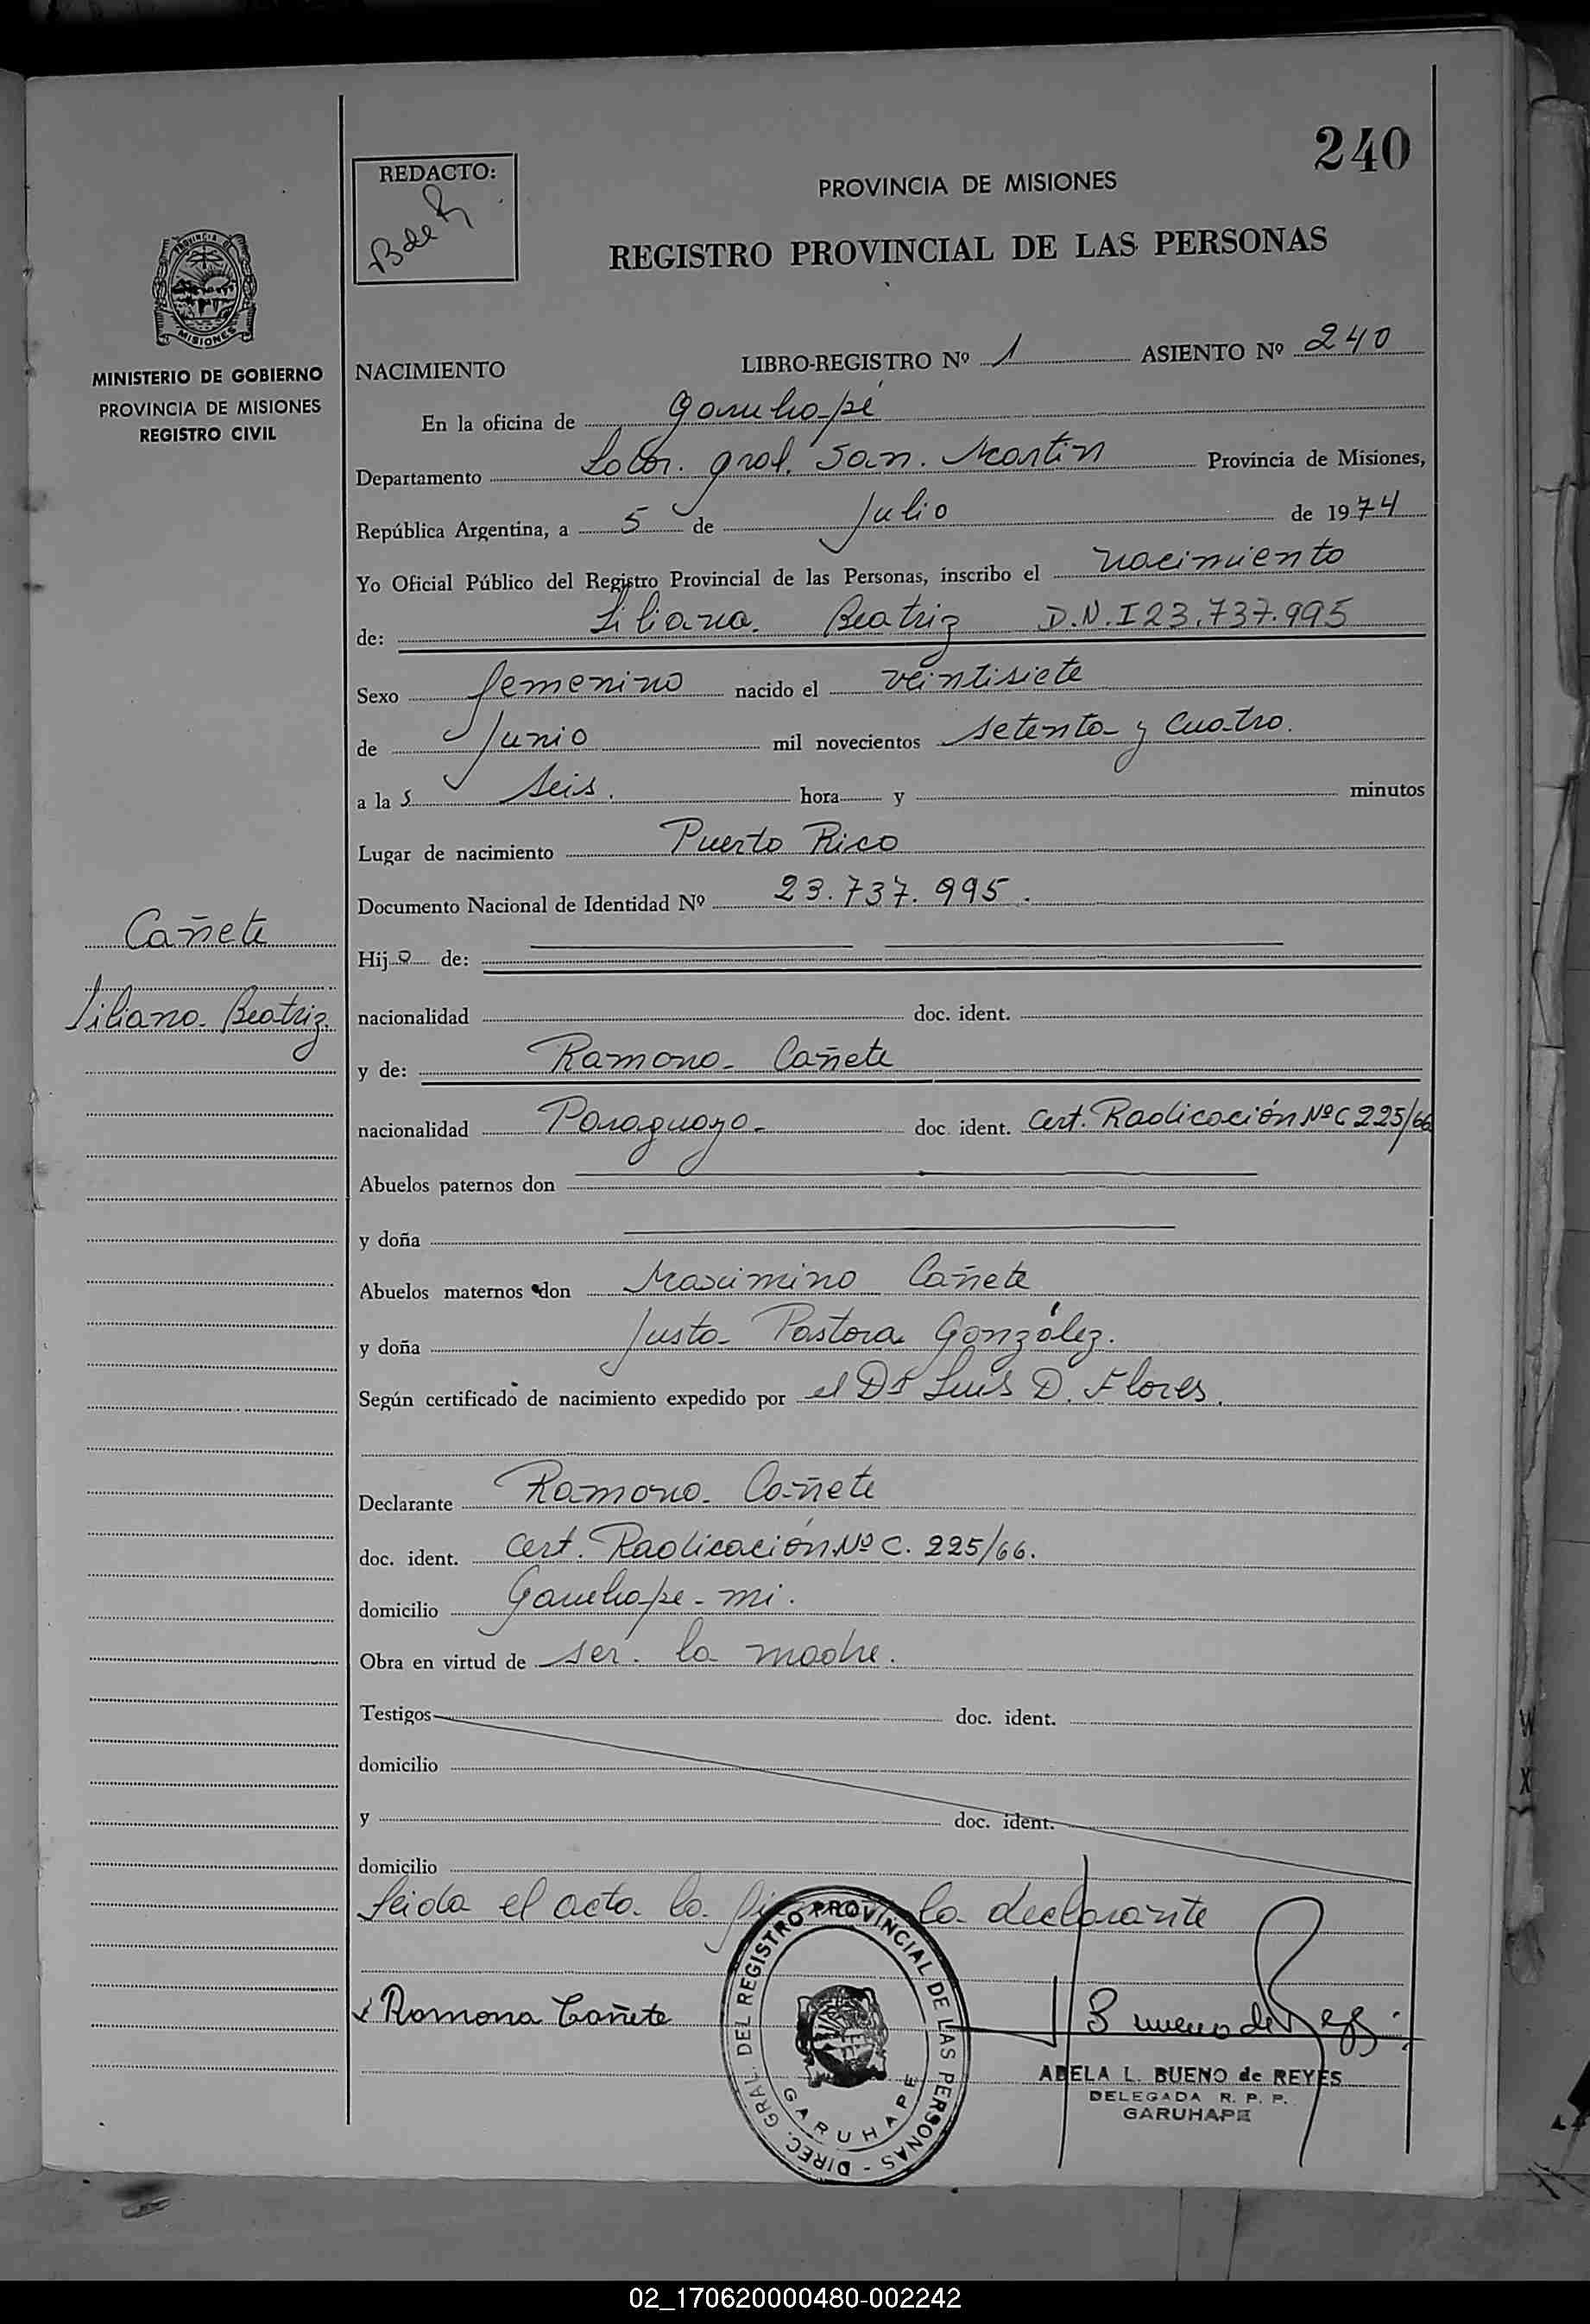 240
REDACTO:
B de R
PROVINCIA DE MISIONES
REGISTRO PROVINCIAL DE LAS PERSONAS
PROVINCIA DE MISIONES
MINISTERIO DE GOBIERNO
PROVINCIA DE MISIONES
REGISTRO CIVIL
NACIMIENTO LIBRO-REGISTRO Nº 1 ASIENTO Nº 240
En la oficina de Garuhapé
Departamento Lbdor. Gral. San. Martin Provincia de Misiones,
República Argentina, a 5 de Julio de 1974
Yo Oficial Público del Registro Provincial de las Personas, inscribo el nacimiento
de: Liliana. Beatriz D.N.I 23.737.995
Sexo femenino nacido el veintisiete
de Junio mil novecientos setenta y cuatro.
a la s seis. hora y minutos
Lugar de nacimiento Puerto Rico
Documento Nacional de Identidad Nº 23.737.995.
Cañete
Liliana Beatriz.
Hij a de:
nacionalidad doc. ident.
y de: Ramona Cañete
nacionalidad Paraguaya doc. ident. Cert. Radicación Nº C 225/66
Abuelos paternos don
y doña
Abuelos maternos don Maximino Cañete
y doña Justa Pastora González.
Según certificado de nacimiento expedido por el Dr Luis D. Flores.
Declarante Ramona Cañete
doc. ident. Cert. Radicación Nº C. 225/66.
domicilio Garuhape - mi.
Obra en virtud de ser. la madre.
Testigos doc. ident.
domicilio
y doc. ident.
domicilio
Leida el acta la la declarante
x Ramona Cañete
DIREC. GRAL. DEL REGISTRO PROVINCIAL DE LAS PERSONAS -
GARUHAPE
Bueno de Reyes
ADELA L. BUENO de REYES
DELEGADA R. P. P.
GARUHAPE
W
X
02_170620000480-002242